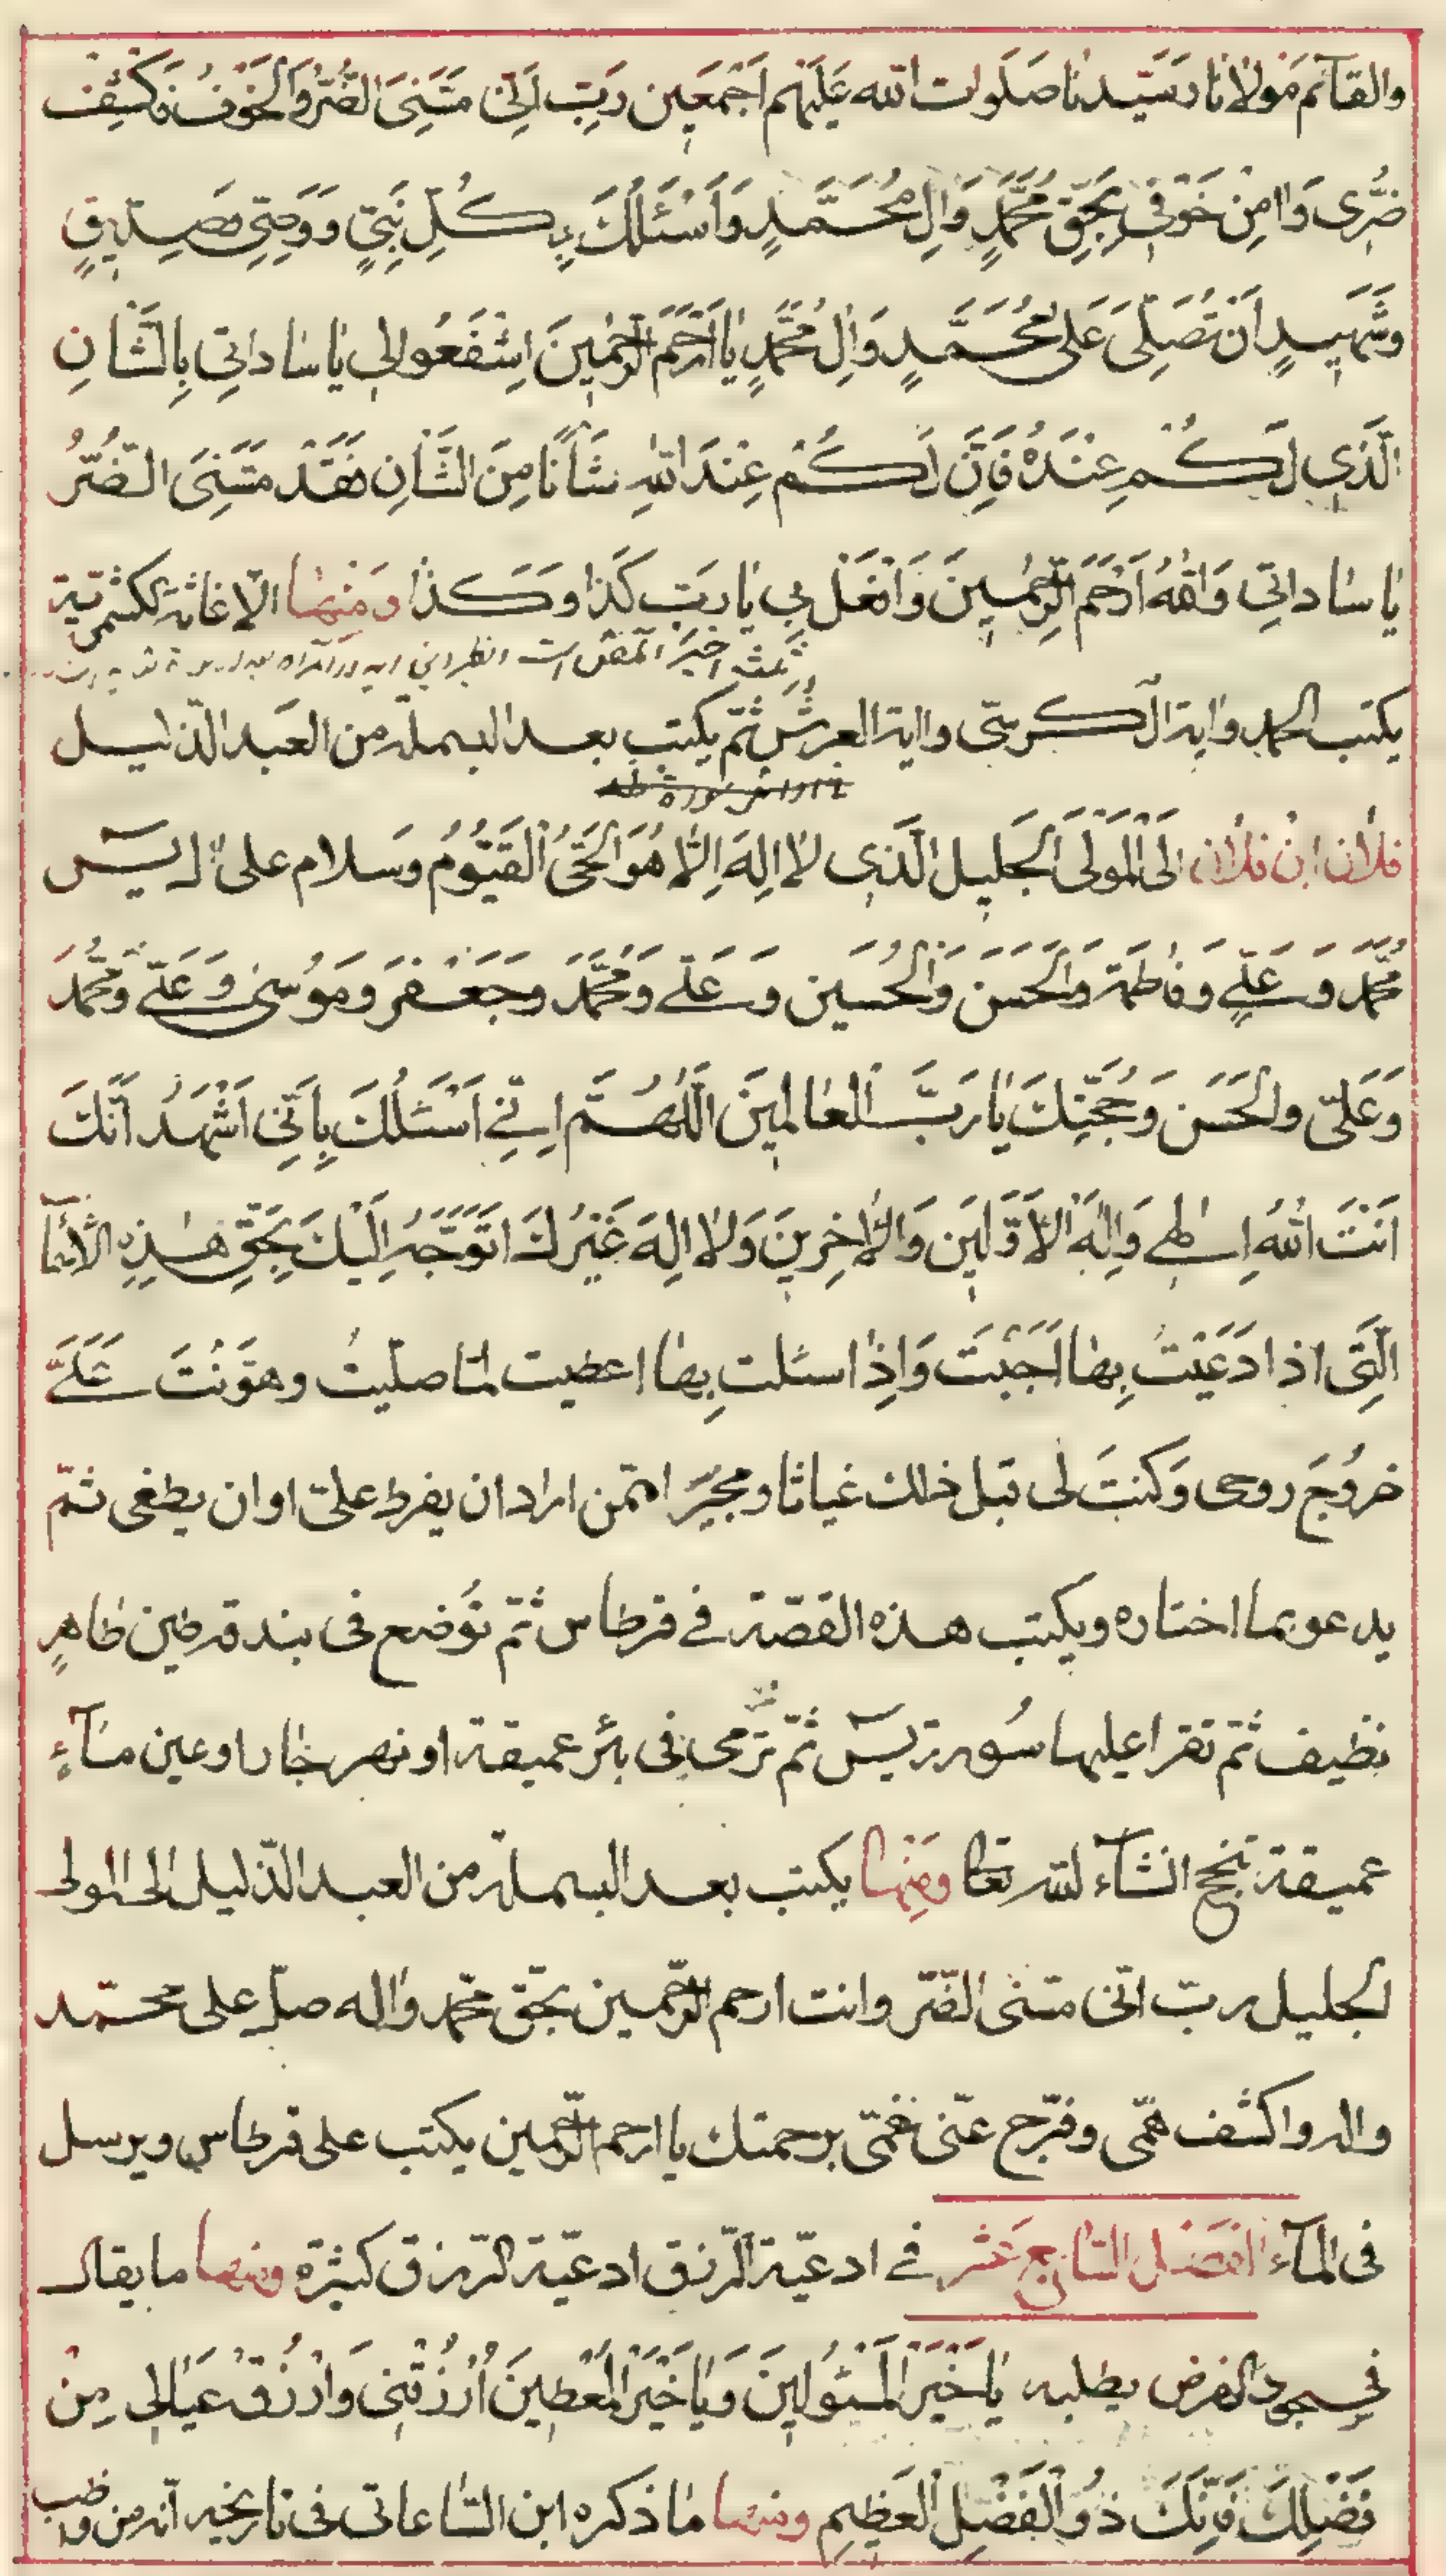 والقآئم مَولانا وسَيّدنا صَلَوات الله عَلَيْهِم اَجْمَعين رَبِّ اَنّى مَسَّنِىَ الضُّرُّ وَالْخَوْفُ فَاكْشِفْ
ضُرّى وَاٰمِنْ خَوْفى بِحَقِّ مُحَمَّدٍ وَاٰلِ مُحَمَّدٍ وَاَسْئَلُكَ بِكُلِّ نَبِىٍّ وَوَصِىٍّ وَصِدّيقٍ
وَشَهيدٍ اَنْ تُصَلِّىَ عَلى مُحَمَّدٍ وَاٰلِ مُحَمَّدٍ يٰا اَرْحَمَ الرّٰحِمينَ اِشْفَعُوا لى يٰا سٰاداتى بِالشَّاْنِ
الَّذى لَكُمْ عِنْدَهُ فَاِنَّ لَكُمْ عِنْدَ اللهِ شَأْنًا مِنَ الشَّأْنِ فَقَدْ مَسَّنِىَ الضُّرُّ
يٰا سٰاداتى وَاللهُ اَرْحَمُ الرّٰحِمينَ وَافْعَلْ بى يٰا رَبِّ كَذا وَكَذا وَمنْهٰا الاغاثة لكشمرية
يكتب الحمد واية الكرسىّ واية العرش ثمّ يكتب بعد البسملة من العبد الذّليل
سورة طه
فلان ابن فلان اِلَى الْمَوْلَى الْجَليل الَّذى لا اِلهَ اِلّا هُوَ الْحَىُّ الْقَيُّومُ وَسَلام على ال يس
مُحَمَّد وَعَلِىٍّ وَفٰاطِمَة وَالْحَسَن وَالْحُسَين وَعَلى وَمُحَمَّد وَجَعْفَر وَمُوسٰى وَعَلىّ وَمُحَمَّد
وَعَلىّ وَالْحَسَن وَحُجَّتِكَ يٰا رَبَّ الْعالَمينَ اَللّٰهُمَّ اِنّى اَسْئَلُكَ بِاَنّى اَشْهَدُ اَنَّكَ
اَنْتَ اللهُ اِلٰهى وَاِلٰهُ الْاَوَّلينَ وَالْاٰخِرينَ وَلا اِلهَ غَيْرُكَ اَتَوَجَّهُ اِلَيْكَ بِحَقِّ هٰذِهِ الْاَسْمآ
الَّتى اذا دُعيتَ بِهٰا اَجَبْتَ وَاِذا سئلت بِها اعطيت لمّا صلّيتَ وهَوَّنْتَ عَلَىَّ
خروُجَ روحى وَكنتَ لى قبل ذلك غياثا ومجيرًا ممّن اراد ان يفرط علىّ او ان يطغى ثمّ
يدعو بما اختاره ويكتب هذه القصّة فى قرطاس ثمّ توُضع فى بندقة طين طاهرٍ
نظيف ثمّ تقرا عليها سُورة يس ثمّ تُرمى فى بئر عميقة او نهر جٰار او عين مآءٍ
عميقة تنجح انشآء لله تعا وَمنها يكتب بعد البسملة من العبد الذّليل الى المولى
الجليل ربّ انّى مسّنى الضّرّ وانت ارحم الرّحمين بحقّ محمّد واله صلّ على محمّد
واله واكشف همّى وفرّج عنّى غمّى برحمتك يا ارحم الرّحمين يكتب على قرطاس ويرسل
فى المآء الفصل السّابع عشر فى ادعيّة الرّزق ادعيّة الرّزق كثيرة ومنها ما يقال
فى سجود الفرض يطلبه يٰا خَيْرَ الْمَسْئُولينَ وَيٰا خَيْرَ الْمُعْطينَ اُرْزُقْنى وَارْزُقْ عَيٰالى مِنْ
فَضْلِكَ فَاِنَّكَ ذُو الْفَضْلِ الْعَظيمِ ومنها مٰا ذكره ابن السّاعاتى فى تاريخه انّه من واظب